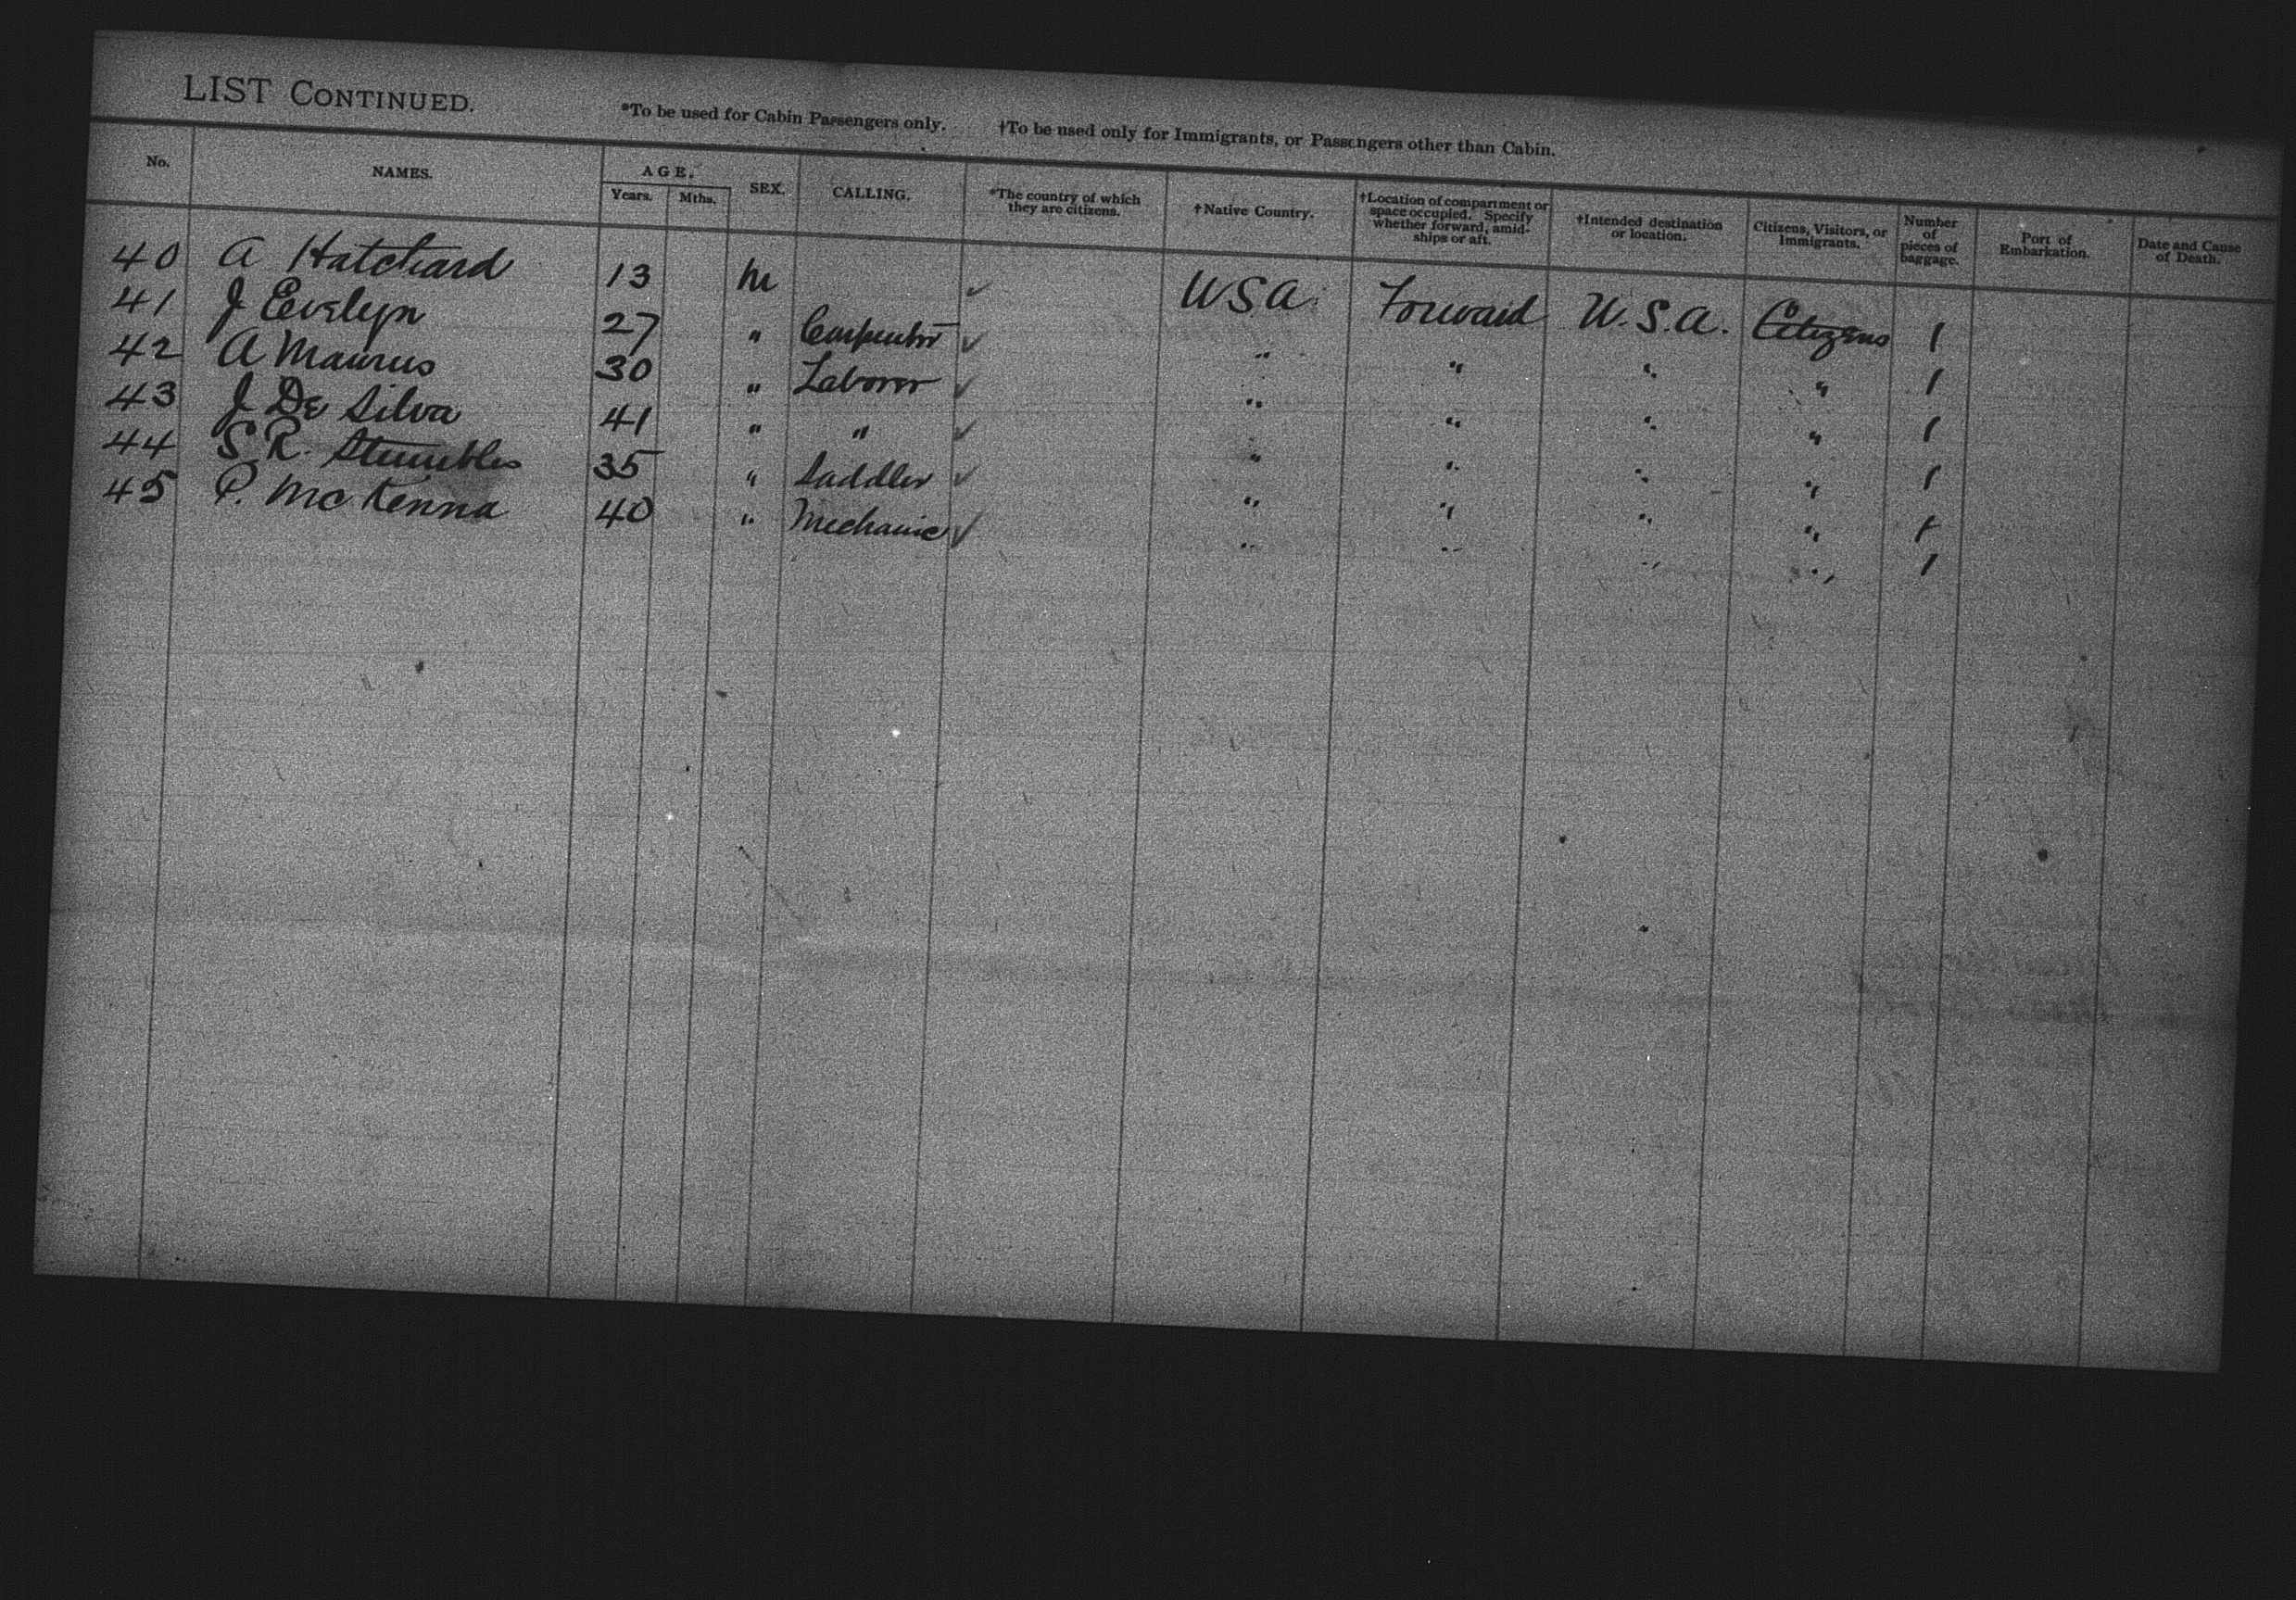 LIST CONTINUED. *To be used for Cabin Passengers only. †To be used only for Immigrants, or Passengers other than Cabin.
No. NAMES. AGE. Years. Mths. SEX. CALLING. *The country of which they are citizens. †Native Country. †Location of compartment or space occupied. Specify whether forward, amidships or aft. †Intended destination or location. Citizens, Visitors, or Immigrants. Number of pieces of baggage. Port of Embarkation. Date and Cause of Death.
40 A Hatchard 13 M ✓ USA. Forward U.S.A. Citizens 1
41 J Evelyn 27 " Carpenter ✓ " " " " 1
42 A Maurus 30 " Laborer ✓ " " " " 1
43 J De Silva 41 " " ✓ " " " " 1
44 S R. Stumbles 35 " Saddler ✓ " " " " 1
45 P. McKenna 40 " Mechanic ✓ " " " " 1